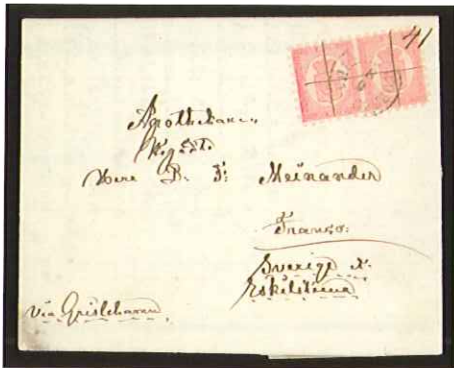 41
Apothekaren
Herr B. F: Meinander
Franco.
Sverige &.
Eskilstuna
via Grislehamn